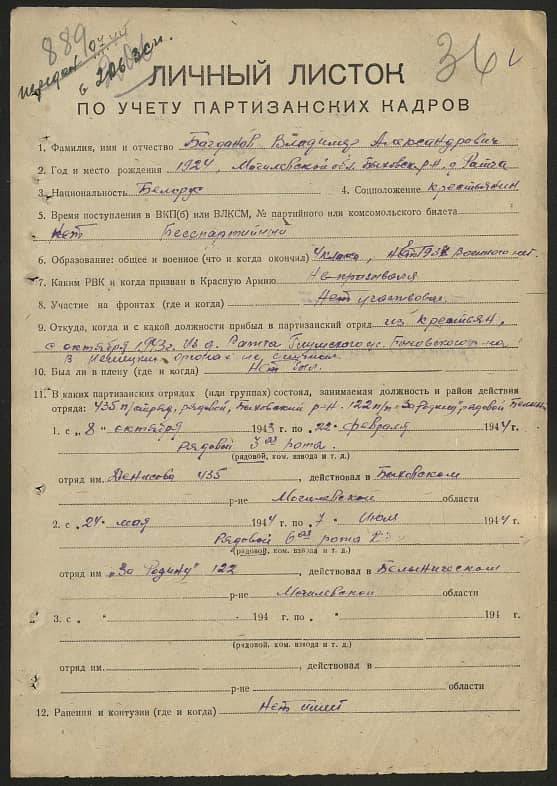 889
36
ЛИЧНЫЙ ЛИСТОК
ПО УЧЕТУ ПАРТИЗАНСКИХ КАДРОВ
1. Фамилия, имя и отчество Багданов Владимир Александрович
2. Год и место рождения 1924, Могилевской обл. Быховск. р-н, д. Ратча
3. Национальность Белорус 4. Соцположение крестьянин
5. Время поступления в ВКП(б) или ВЛКСМ, № партийного или комсомольского билета
Нет Бесспартийный
6. Образование: общее и военное (что и когда окончил) 4 класа, Военного нет
7. Каким РВК и когда призван в Красную Армию Не призывался
8. Участие на фронтах (где и когда) Нет участвовал
9. Откуда, когда и с какой должности прибыл в партизанский отряд из крестьян,
с октября 1943г. Из д. Ратча Быховского р-на
В немецких органах не служил
10. Был ли в плену (где и когда) Нет был.
11. В каких партизанских отрядах (или группах) состоял, занимаемая должность и район действия
отряда: 435 п/отряд, рядовой, Быховский р-н. 122 п/п "За Родину" рядовой
1. с „8" октября 1943 г. по „22" февраля 1944 г.
Рядовой 3ая рота
(рядовой, ком. взвода и т. д.)
отряд им. Денисова 435, действовал в Быховском
р-не Могилевской области
2. с „24" мая 1944 г. по „7" Июля 1944 г.
Рядовой 6ая рота
(рядовой, ком. взвода и т. д.)
отряд им „За Родину" 122, действовал в Белыническом
р-не Могилевской области
3. с „ " 194 г. по „ " 194 г.
(рядовой, ком. взвода и т. д.)
отряд им. , действовал в
р-не области
12. Ранения и контузии (где и когда) Нет имел